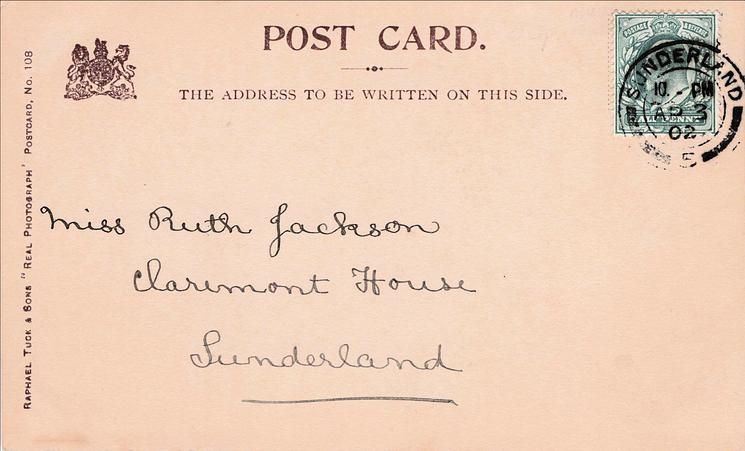 POST CARD.
THE ADDRESS TO BE WRITTEN ON THIS SIDE.
POSTAGE
HALFPENNY
SUNDERLAND
10 - PM
AP 3
02
5
Miss Ruth Jackson
Claremont House
Sunderland
RAPHAEL TUCK & SONS "REAL PHOTOGRAPH" POSTCARD, No. 108